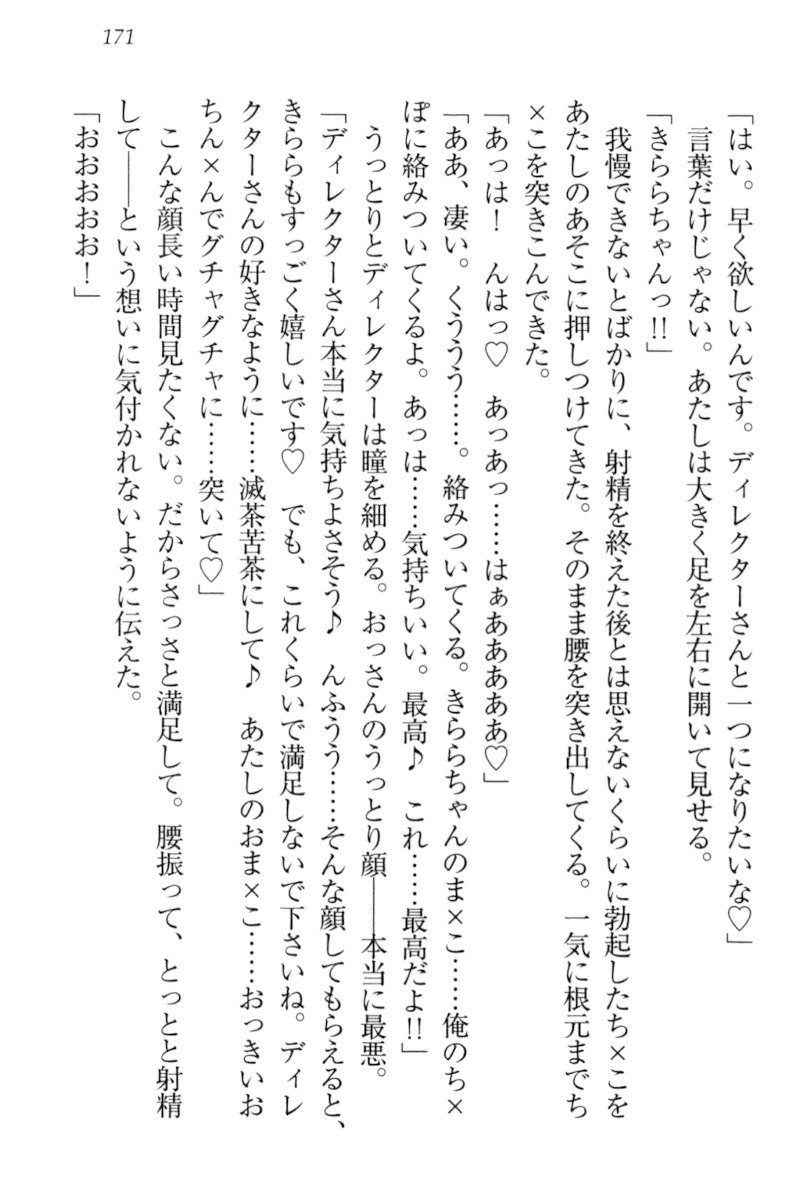 171
「はい。早く欲しいんです。ディレクターさんと一つになりたいな♡」
言葉だけじゃない。あたしは大きく足を左右に開いて見せる。
「きららちゃんっ!!」
我慢できないとばかりに、射精を終えた後とは思えないくらいに勃起したち×こを
あたしのあそこに押しつけてきた。そのまま腰を突き出してくる。一気に根元までち
×こを突きこんできた。
「あっは！　んはっ♡　あっあっ……はぁああああ♡」
「ああ、凄い。くううう……。絡みついてくる。きららちゃんのま×こ……俺のち×
ぽに絡みついてくるよ。あっは……気持ちいい。最高♪　これ……最高だよ!!」
うっとりとディレクターは瞳を細める。おっさんのうっとり顔――本当に最悪。
「ディレクターさん本当に気持ちよさそう♪　んふうう……そんな顔してもらえると、
きららもすっごく嬉しいです♡　でも、これくらいで満足しないで下さいね。ディレ
クターさんの好きなように……滅茶苦茶にして♪　あたしのおま×こ……おっきいお
ちん×んでグチャグチャに……突いて♡」
こんな顔長い時間見たくない。だからさっさと満足して。腰振って、とっとと射精
して――という想いに気付かれないように伝えた。
「おおおおお！」